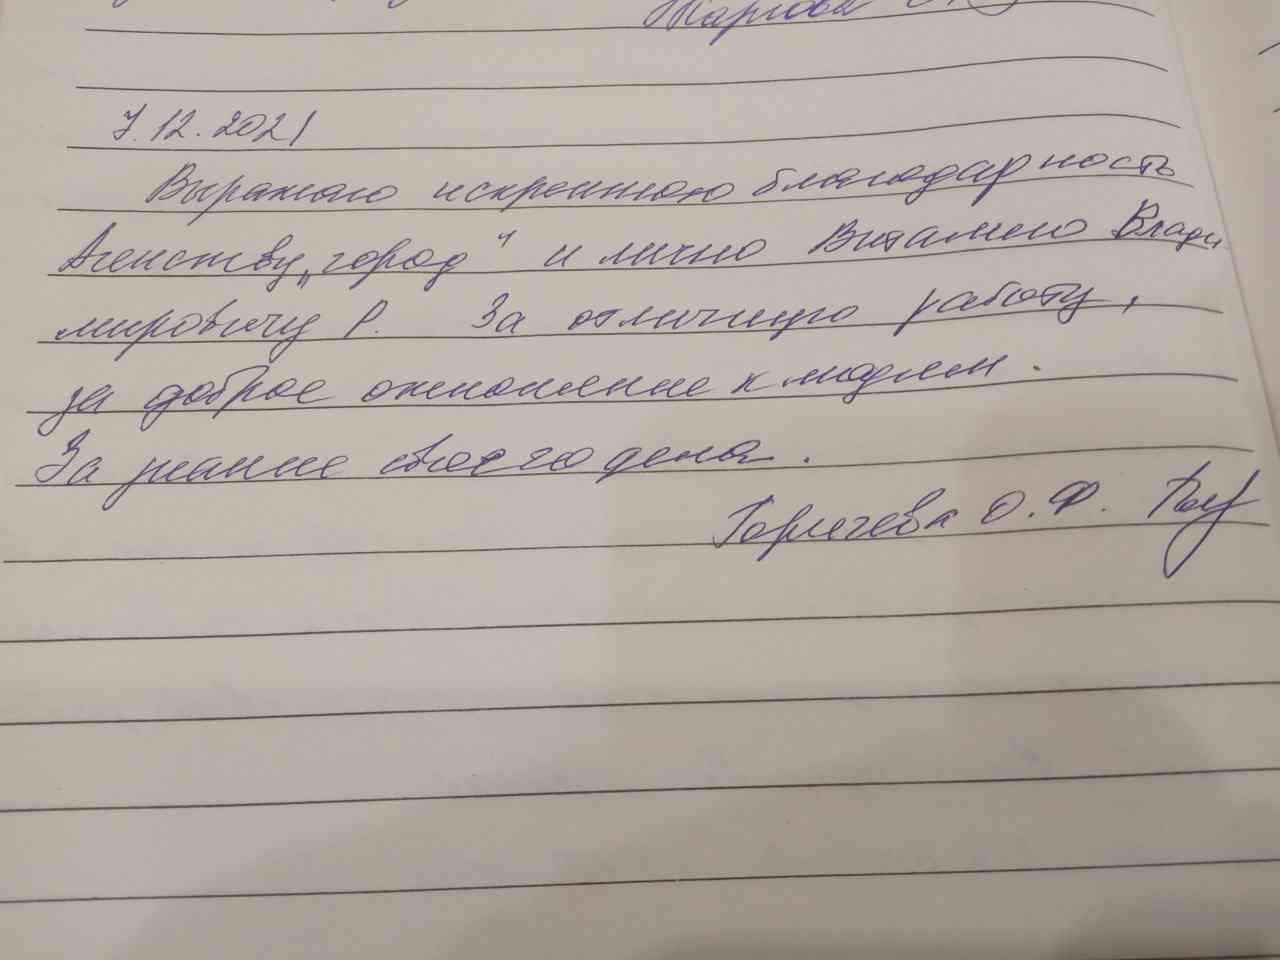 7.12.2021
Выражаю искреннюю благодарность
Агенству „город" и лично Виталию Влади
мировичу Р. За отличную работу,
за доброе отношение к людям.
За знание своего дела.
Горячева О. Ф.